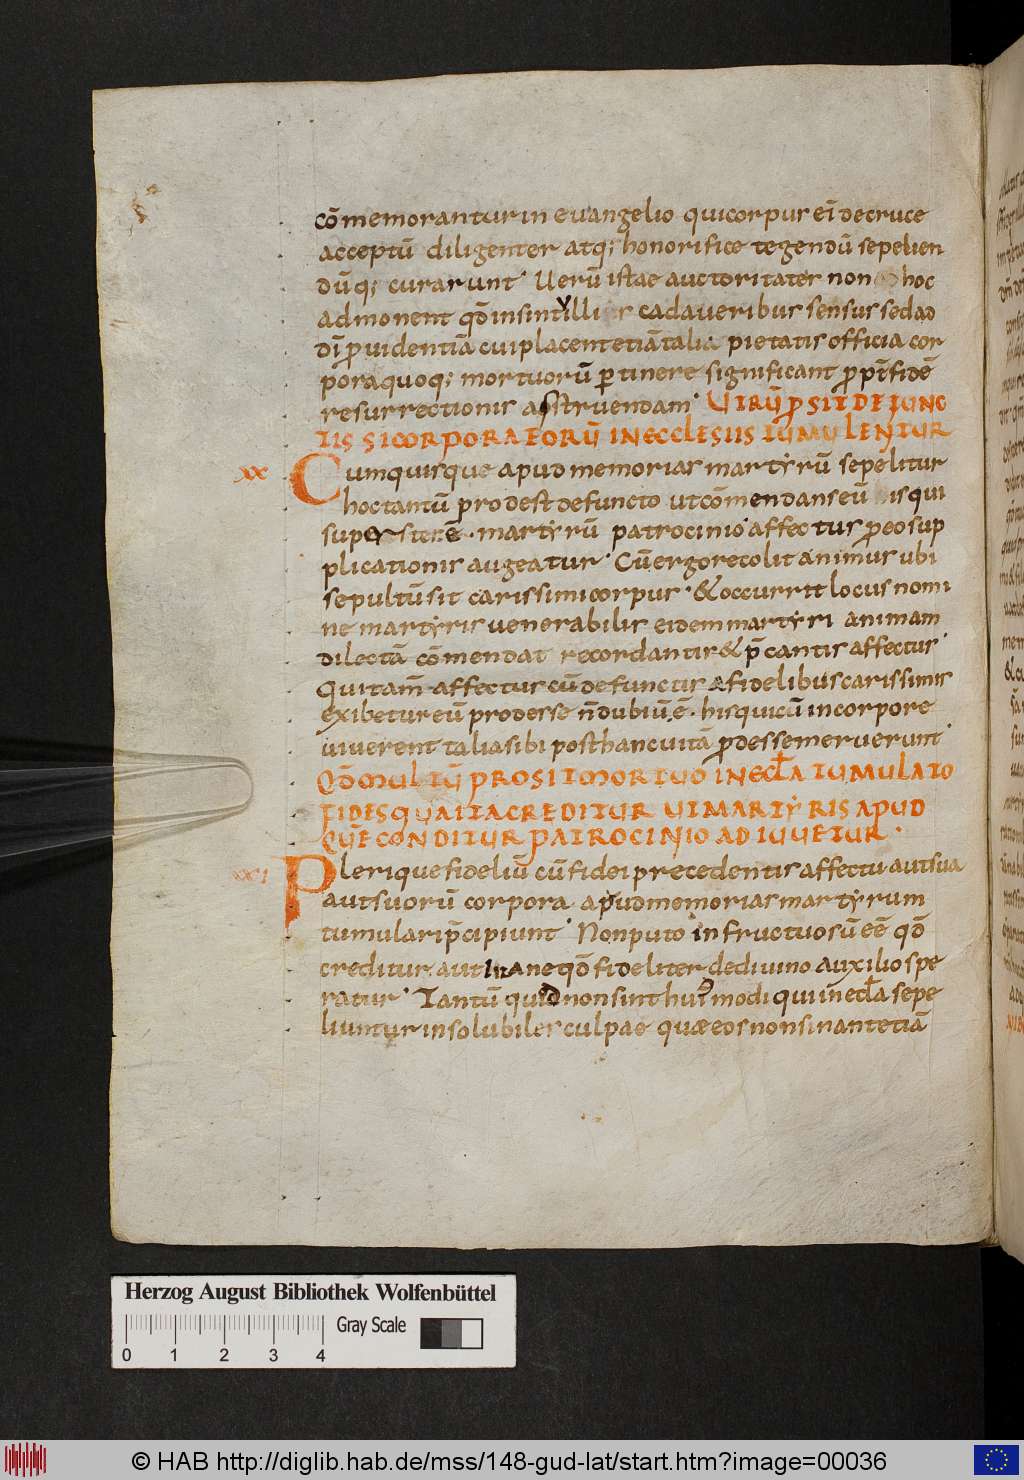 cōmemorantur in euangelio qui corpus ei' de cruce
acceptū diligenter atq; honorifice tegendū sepelien
dūq; curarunt. Uerū istae auctoritates non hoc
admonent qđ insint ullis cadaueribus sensus sed ad
dī prouidentiā cui placent etiā talia pietatis officia cor
pora quoq; mortuorū ꝑtinere significant ꝓpt̄ fidē
resurrectionis astruendam. UTRŪ PROSIT DEFUNC
TIS SI CORPORA EORŪ IN ECCLESIIS TUMULENTUR
xx Cum quisque apud memorias martyrū sepelitur
hoc tantū prodest defuncto ut cōmendans eū is qui
sup martyrū patrocinio affectus pro eo sup
plicationis augeatur. Cū ergo recolit animus ubi
sepultū sit carissimi corpus. & occurrit locus nomi
ne martyris uenerabilis eidem martyri animam
dilectā cōmendat recordantis & p̄cantis affectus.
Qui tam̄ affectus cū defunctis a fidelibus carissimis
exibetur eū prodesse n̄ dubiū ē. his qui cū in corpore
uiuerent talia sibi post hanc uitā ꝓdesse meruerunt.
QĐ MULTŪ PROSIT MORTUO IN ECCLA TUMULATO
FIDES QUA ITA CREDITUR UT MARTYRIS APUD
QUĒ CONDITUR PATROCINIO ADIUUETUR.
xxi Plerique fideliū cū fidei precedentis affectu aut sua
aut suorū corpora apud memorias martyrum
tumulari p̄cipiunt. Non puto infructuosū eē qđ
creditur aut inane qđ fideliter de diuino auxilio spe
ratur. Tantū quod non sint hui'modi qui in eccla sepe
liuntur insolubiles culpae quae eos non sinant etiā
Herzog August Bibliothek Wolfenbüttel
Gray Scale
0 1 2 3 4
© HAB http://diglib.hab.de/mss/148-gud-lat/start.htm?image=00036